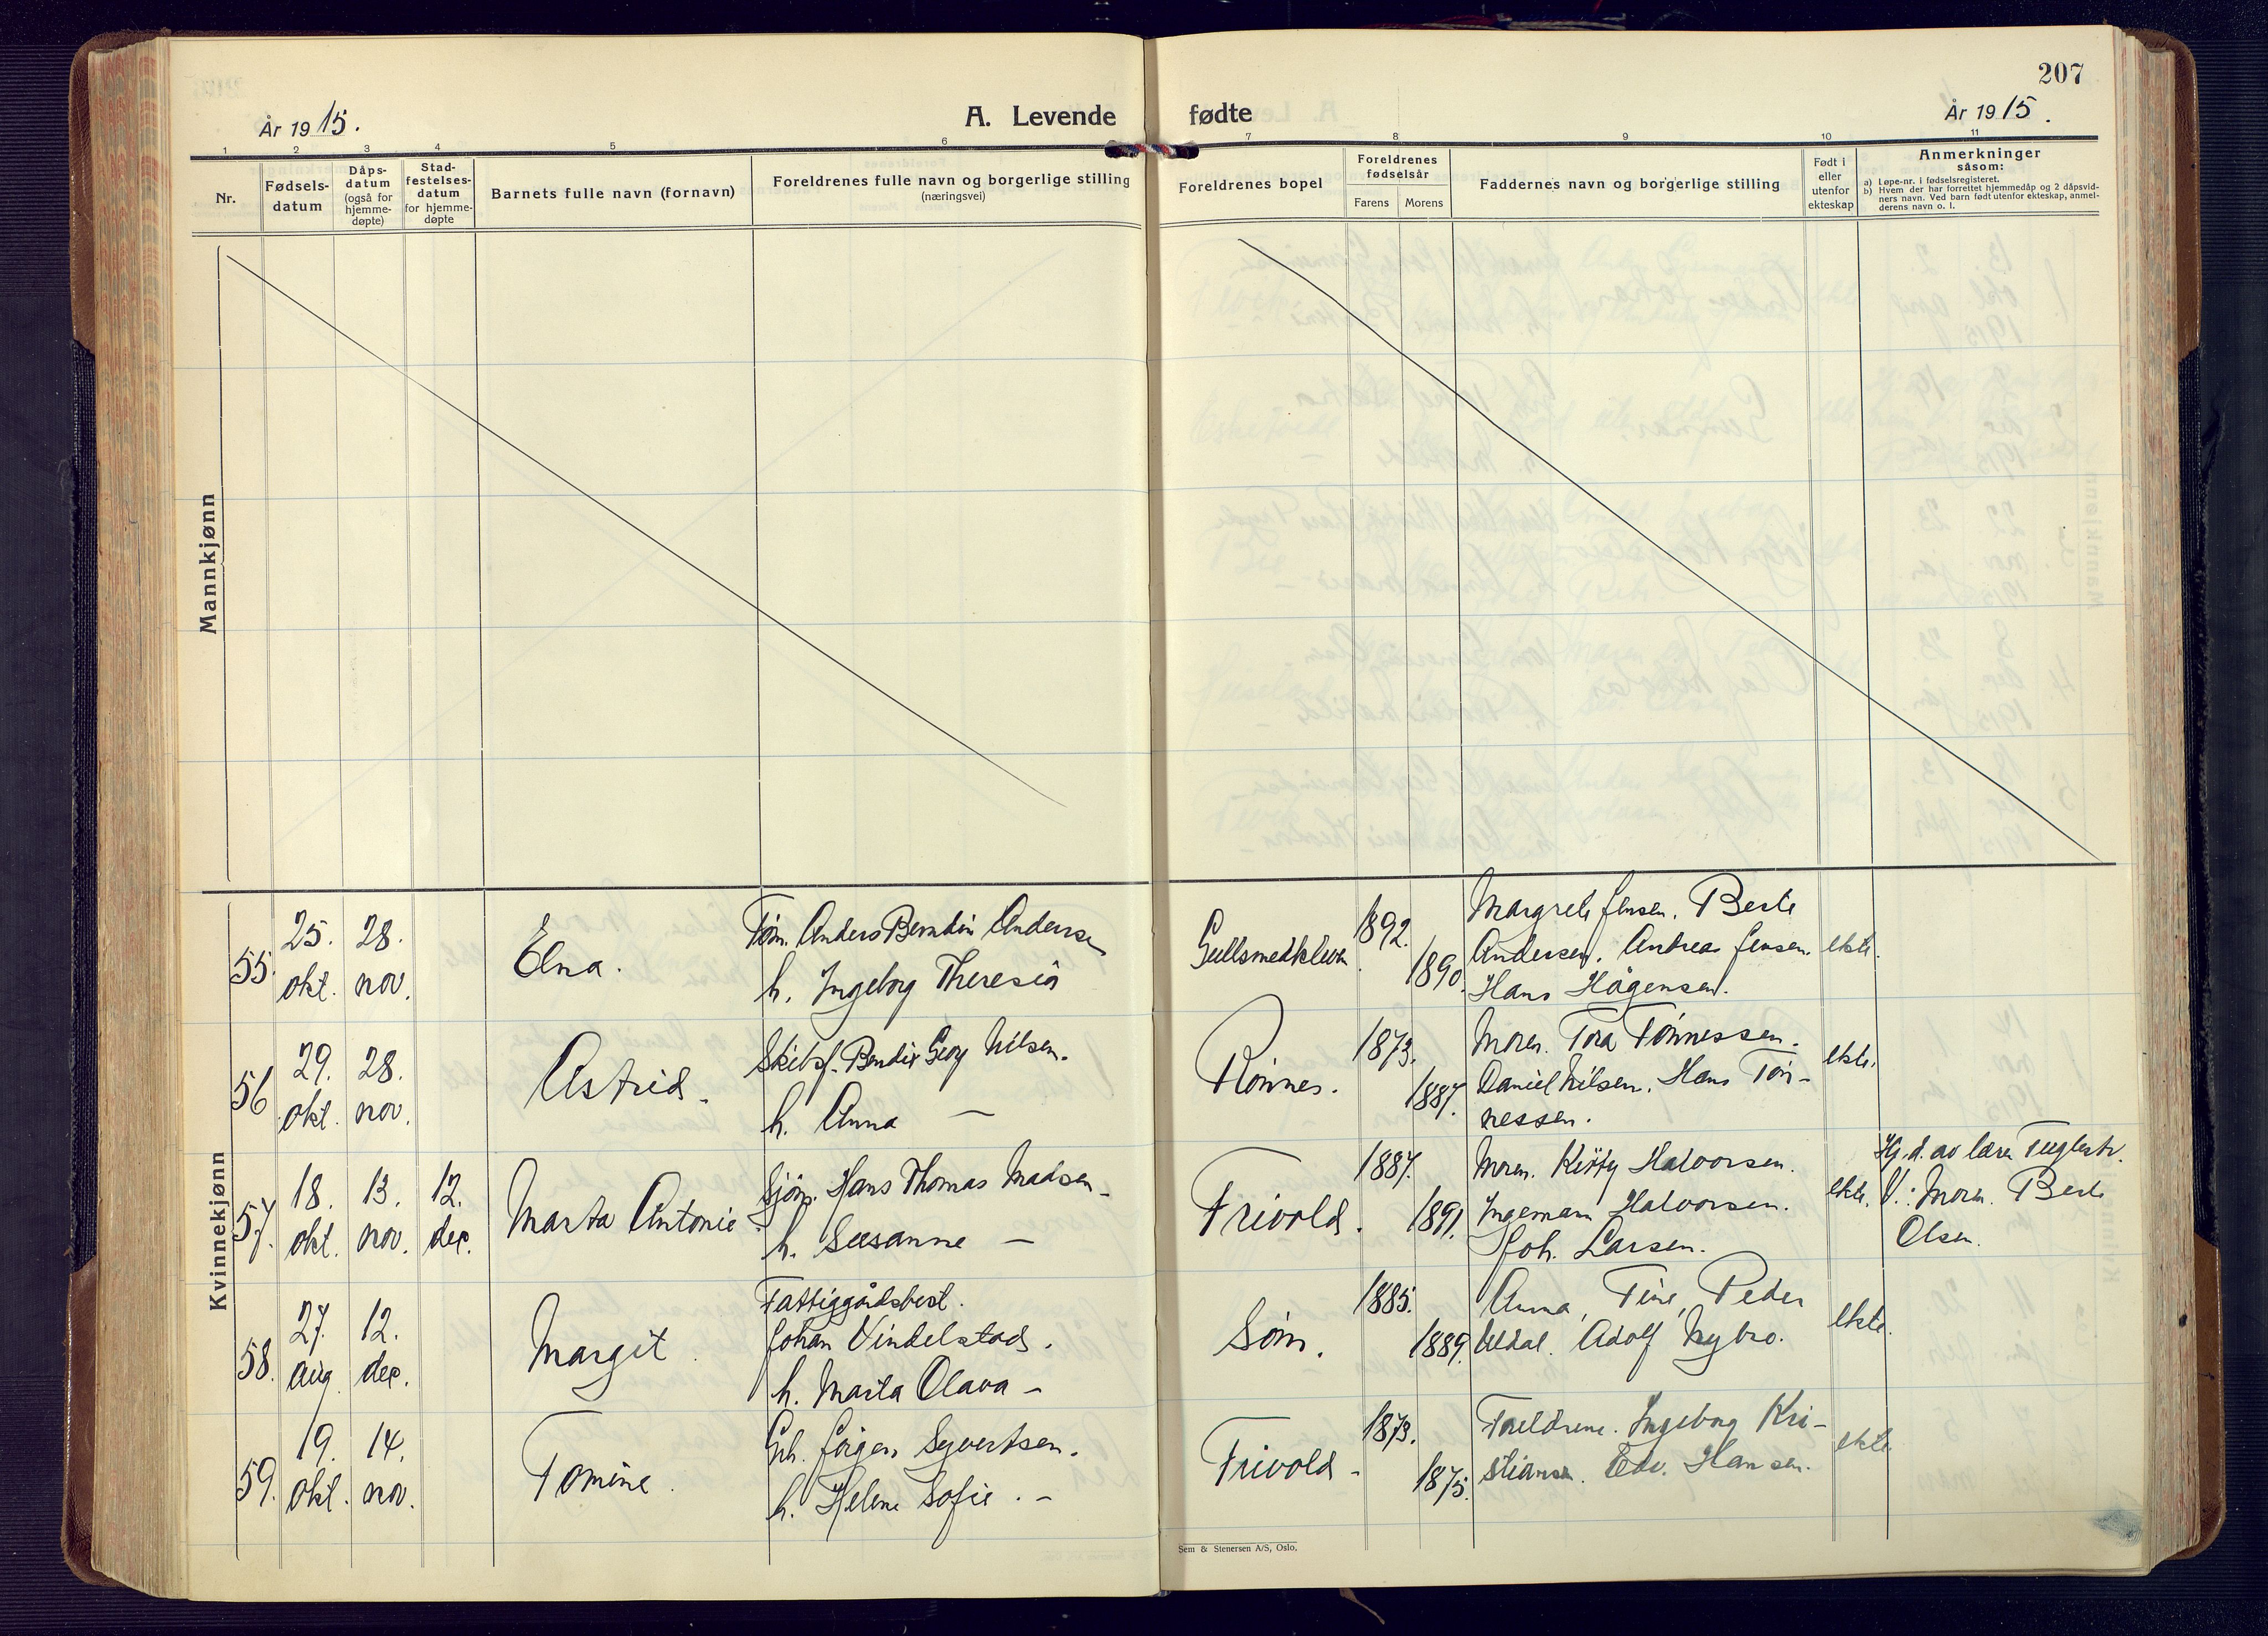 207
År 1915.
A. Levende
fødte
År 1915.
1 2 3 4 5 6 7 8 9 10 11
Nr.
Fødsels-
datum
Dåps-
datum
(også for
hjemme-
døpte)
Stad-
festelses-
datum
for hjemme-
døpte
Barnets fulle navn (fornavn)
Foreldrenes fulle navn og borgerlige stilling
(næringsvei)
Foreldrenes bopel
Foreldrenes
fødselsår
Farens Morens
Faddernes navn og borgerlige stilling
Født i
eller
utenfor
ekteskap
Anmerkninger
såsom:
a) Løpe-nr. i fødselsregisteret.
b) Hvem der har forrettet hjemmedåp og 2 dåpsvid-
ners navn. Ved barn født utenfor ekteskap, anmel-
derens navn o. l.
Mannkjønn
Kvinnekjønn
55.
25.
okt.
28.
nov.
Elna.
Tøm. Anders Berndin Andersen
h. Ingeborg Theresia
Gullsmedkleven.
1892.
1890.
Margrete Jensen. Berte
Andersen. Andreas Jensen.
Hans Hågensen.
ekte.
56
29.
okt.
28.
nov.
Astrid.
Skibsf. Bendix Georg Nilsen.
h. Anna —
Rønnes.
1873.
1887.
Moren. Tora Tønnessen.
Daniel Nilsen. Hans Tøn-
nessen.
ekte.
57.
18.
okt.
13.
nov.
12.
dec.
Marta Antonie
Sjøm. Hans Thomas Madsen.
h. Susanne —
Frivold.
1887.
1891.
Moren. Kitty Halvorsen.
Ingemann Halvorsen.
Joh. Larsen.
ekte.
Hj.d. av lærer Fuglestv.
V.: Moren. Berte
Olsen.
58.
27.
aug.
12.
dec.
Margit.
Fattiggårdsbest.
Johan Vindelstad.
h. Marta Olava —
Søm.
1885.
1889.
Anna, Tine, Peder
Uldal. Adolf Nybro.
ekte.
59.
19.
okt.
14.
nov.
Tomine.
Grh. Jørgen Syvertsen.
h. Helene Sofie. —
Frivold.
1873.
1875.
Foreldrene. Ingeborg Kri-
stiansen. Edv. Hansen.
ekte.
Sem & Stenersen A/S, Oslo.